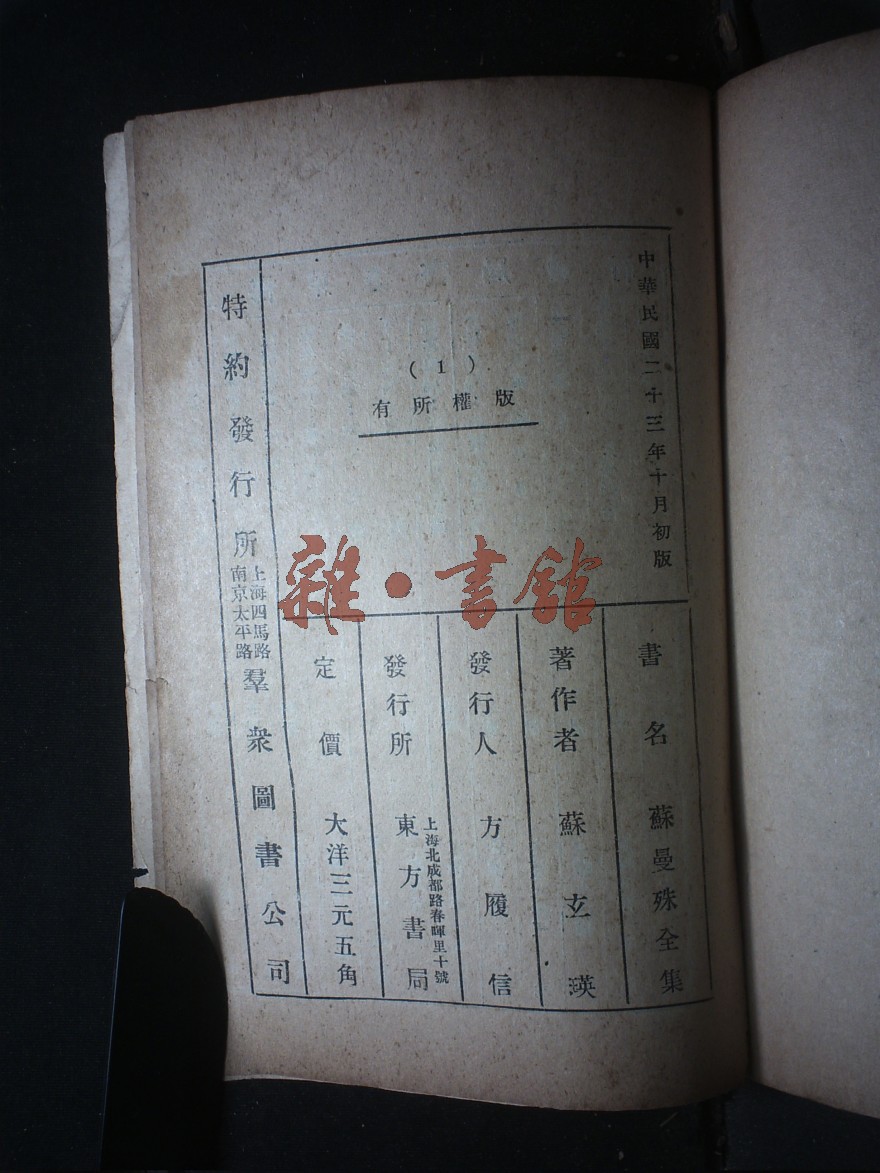 中華民國二十三年十月初版
(1)
有所權版
書名 蘇曼殊全集
著作者 蘇玄瑛
發行人 方履信
發行所 上海北成都路春暉里十號 東方書局
定價 大洋三元五角
特約發行所 上海四馬路 南京太平路 羣衆圖書公司
雜·書館